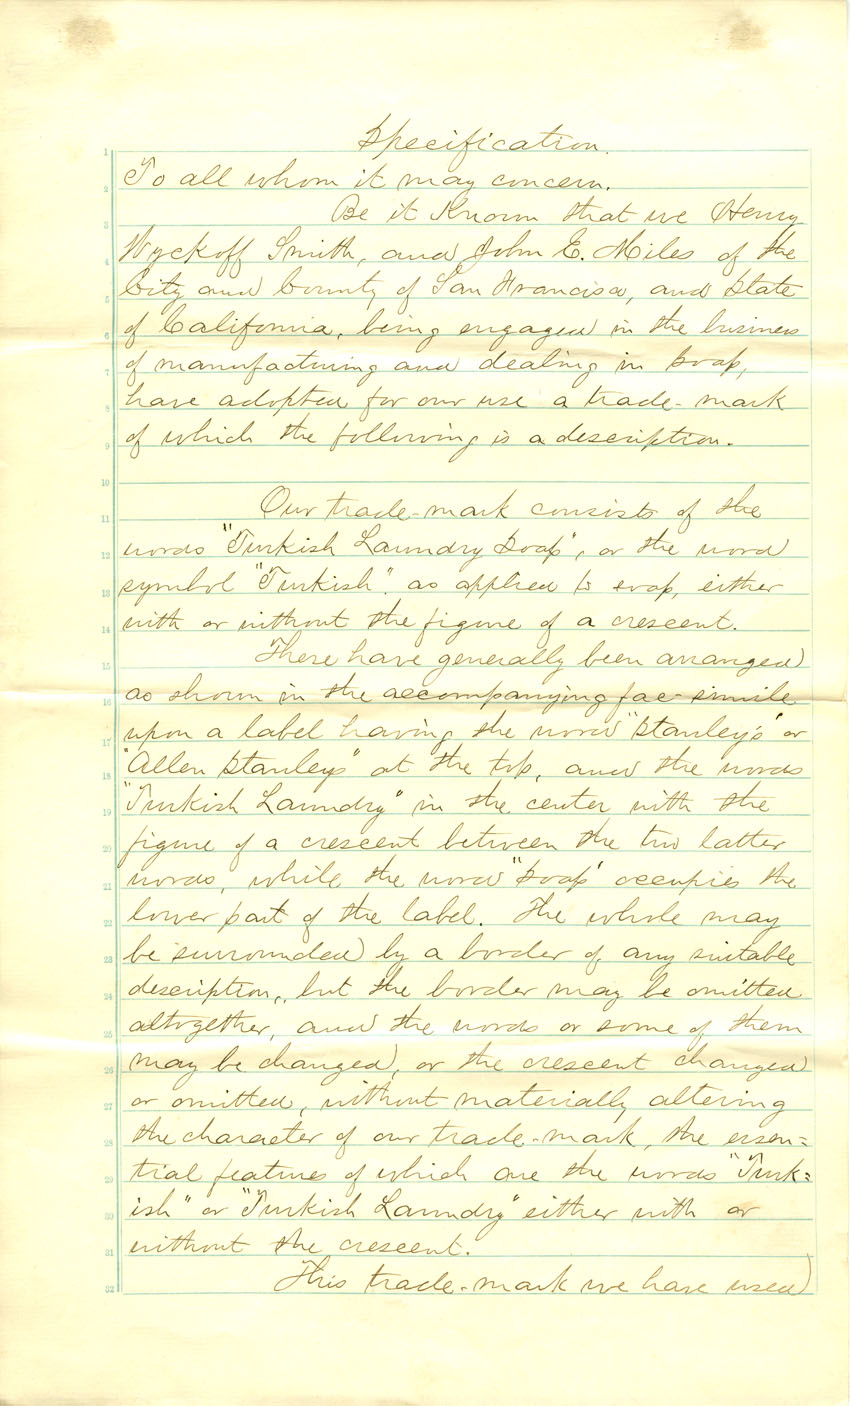 Specification.
1
To all whom it may concern.
2
Be it Known that we Henry
3
Wyckoff Smith, and John E. Miles of the
4
City and County of San Francisco, and State
5
of California, being engaged in the business
6
of manufacturing and dealing in Soap,
7
have adopted for our use a trade-mark
8
of which the following is a description.
9
10
Our trade-mark consists of the
11
words "Turkish Laundry Soap", or the word
12
symbol "Turkish". as applied to soap, either
13
with or without the figure of a crescent.
14
These have generally been arranged
15
as shown in the accompanying fac-simile
16
upon a label having the word "Stanley's" or
17
"Allen Stanleys" at the top, and the words
18
"Turkish Laundry" in the center with the
19
figure of a crescent between the two latter
20
words, while the word "Soap" occupies the
21
lower part of the label. The whole may
22
be surrounded by a border of any suitable
23
description, but the border may be omitted
24
altogether, and the words or some of them
25
may be changed, or the crescent changed
26
or omitted, without materially altering
27
the character of our trade-mark, the essen=
28
tial features of which are the words "Turk=
29
ish" or "Turkish Laundry" either with or
30
without the crescent.
31
This trade-mark we have used
32